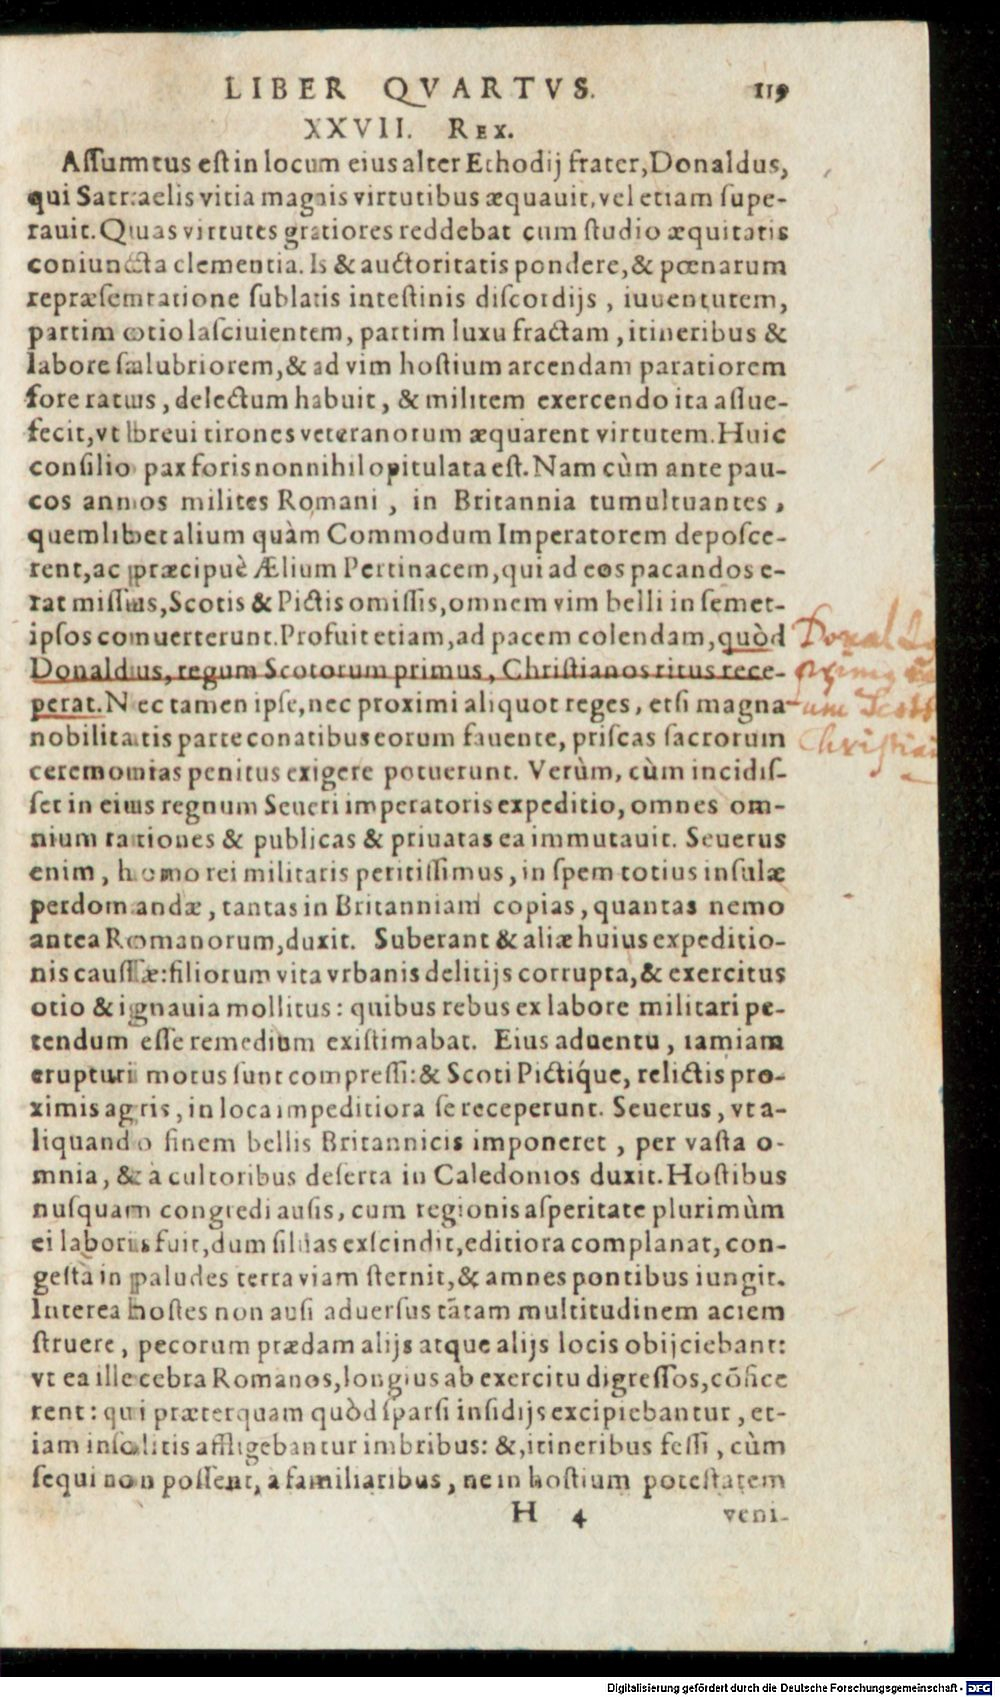 LIBER QVARTVS. 119
XXVII. REX.
Assumtus est in locum eius alter Ethodij frater, Donaldus,
qui Satraelis vitia magnis virtutibus æquauit, vel etiam supe-
rauit. Quas virtutes gratiores reddebat cum studio æquitatis
coniuncta clementia. Is & auctoritatis pondere, & pœnarum
repræsentatione sublatis intestinis discordijs, iuuentutem,
partim otio lasciuientem, partim luxu fractam, itineribus &
labore salubriorem, & ad vim hostium arcendam paratiorem
fore ratus, delectum habuit, & militem exercendo ita assue-
fecit, vt breui tirones veteranorum æquarent virtutem. Huic
consilio pax foris nonnihil opitulata est. Nam cùm ante pau-
cos annos milites Romani, in Britannia tumultuantes,
quemlibet alium quàm Commodum Imperatorem deposce-
rent, ac præcipuè Ælium Pertinacem, qui ad eos pacandos e-
rat missus, Scotis & Pictis omissis, omnem vim belli in semet-
ipsos conuerterunt. Profuit etiam, ad pacem colendam, quòd
Donaldus, regum Scotorum primus, Christianos ritus rece-
perat. Nec tamen ipse, nec proximi aliquot reges, etsi magna
nobilitatis parte conatibus eorum fauente, priscas sacrorum
ceremonias penitus exigere potuerunt. Verùm, cùm incidis-
set in eius regnum Seueri imperatoris expeditio, omnes om-
nium rationes & publicas & priuatas ea immutauit. Seuerus
enim, homo rei militaris peritissimus, in spem totius insulæ
perdomandæ, tantas in Britanniam copias, quantas nemo
antea Romanorum, duxit. Suberant & aliæ huius expeditio-
nis caussæ: filiorum vita vrbanis delitijs corrupta, & exercitus
otio & ignauia mollitus: quibus rebus ex labore militari pe-
tendum esse remedium existimabat. Eius aduentu, iamiam
erupturi motus sunt compressi: & Scoti Pictíque, relictis pro-
ximis agris, in loca impeditiora se receperunt. Seuerus, vt a-
liquando finem bellis Britannicis imponeret, per vasta o-
mnia, & à cultoribus deserta in Caledonios duxit. Hostibus
nusquam congredi ausis, cum regionis asperitate plurimùm
ei laboris fuit, dum siluas exscindit, editiora complanat, con-
gesta in paludes terra viam sternit, & amnes pontibus iungit.
Interea hostes non ausi aduersus tātam multitudinem aciem
struere, pecorum prædam alijs atque alijs locis obijciebant:
vt ea illecebra Romanos, longius ab exercitu digressos, cōfice
rent: qui præterquam quòd sparsi insidijs excipiebantur, et-
iam insolitis affligebantur imbribus: &, itineribus fessi, cùm
sequi non possent, a familiaribus, ne in hostium potestatem
H 4 veni-
Christia
Digitalisierung gefördert durch die Deutsche Forschungsgemeinschaft - DFG